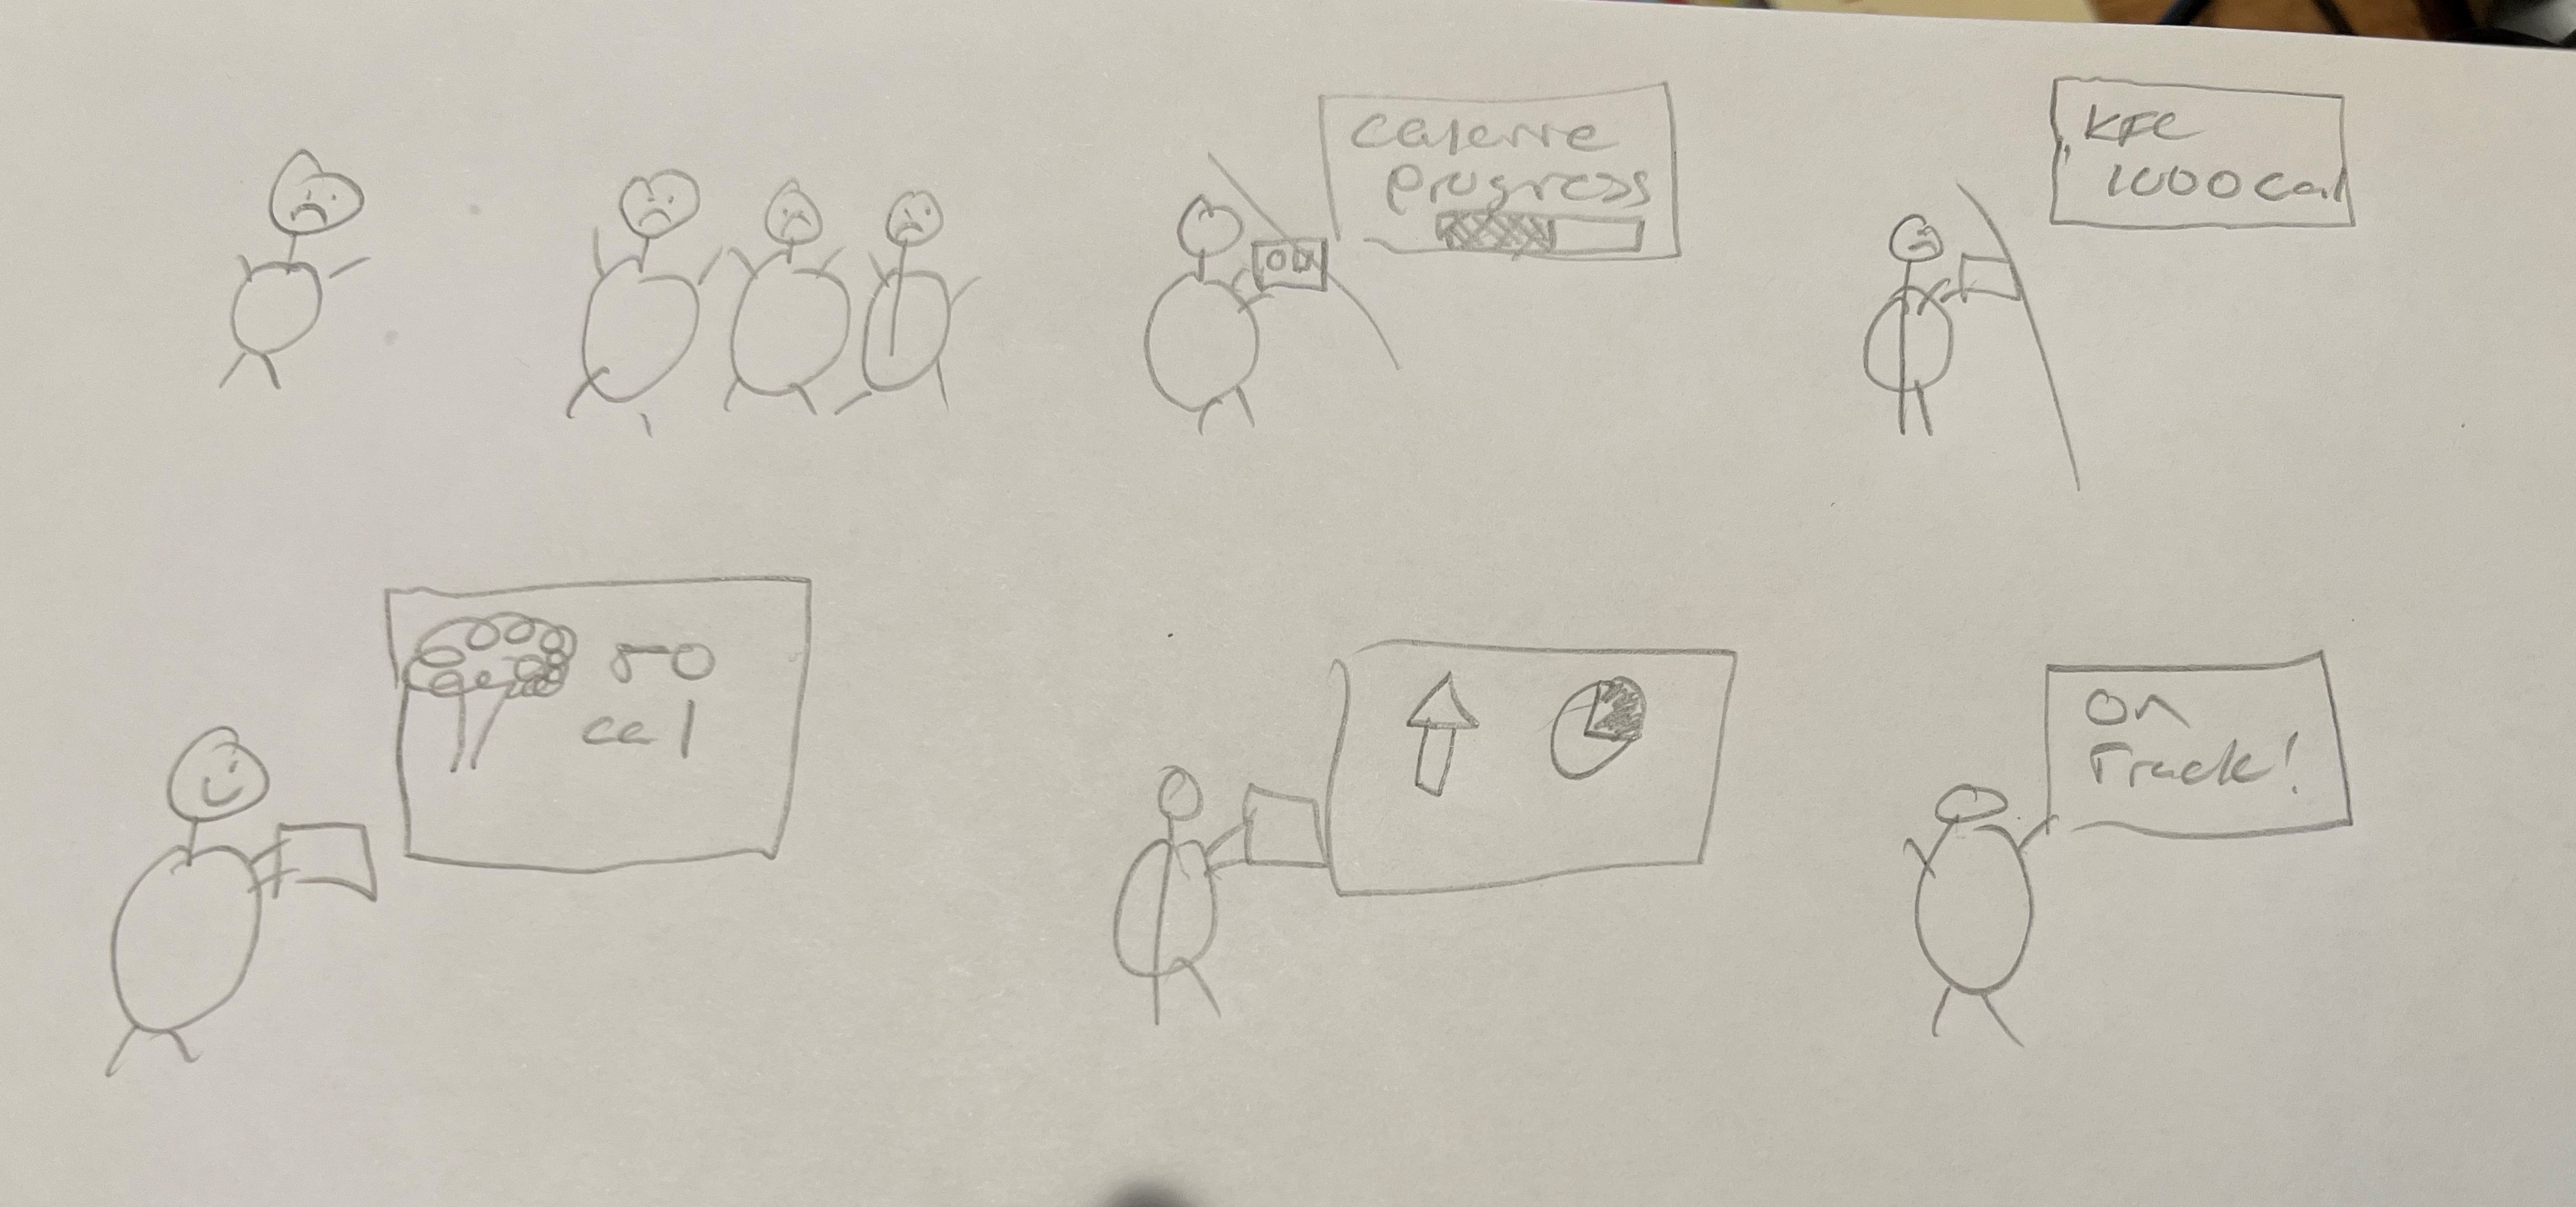 Calorie
Progress
KFC
1000 cal
50
cal
On
Track!